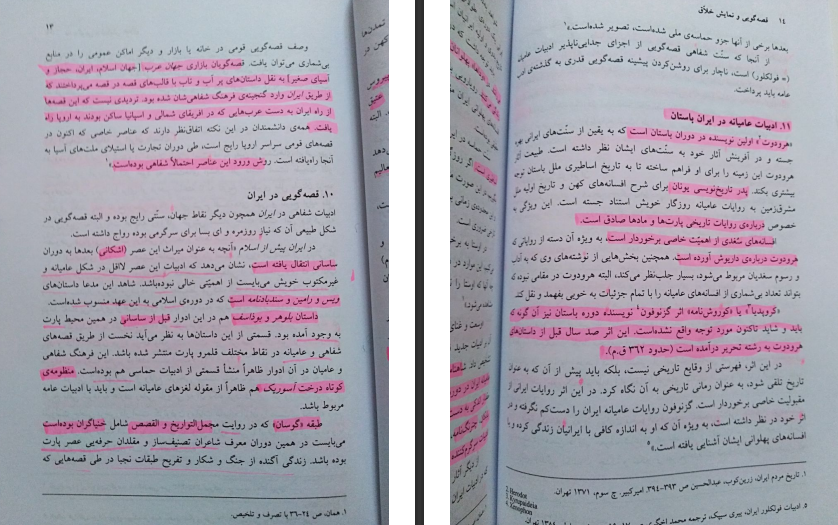 ۱۳
وصف قصه‌گویی قومی در خانه یا بازار و دیگر اماکن عمومی را در منابع
بی‌شماری می‌توان یافت. قصه‌گویان بازاری جهان عرب [جهان اسلام، ایران، حجاز و
آسیای صغیر] به نقل داستان‌های پر آب و تاب با قالب‌های قصه در قصه می‌پرداختند که
از طریق ایران وارد گنجینه‌ی فرهنگ شفاهی‌شان شده بود. تردیدی نیست که این قصه‌ها
از راه ایران به دست عرب‌هایی که در افریقای شمالی و اسپانیا ساکن بودند به اروپا راه
یافت. همه‌ی دانشمندان در این نکته اتفاق‌نظر دارند که عناصر خاصی که اکنون در
قصه‌های قومی سراسر اروپا رایج است، طی دوران تجارت یا استیلای ملت‌های آسیا به
آنجا راه‌یافته است. روش ورود این عناصر احتمالاً شفاهی بوده‌است.۱
۱۰. قصه‌گویی در ایران
ادبیات شفاهی در ایران همچون دیگر نقاط جهان، سنّتی رایج بوده و البته قصه‌گویی در
شکل طبیعی آن که نیاز روزمره و ای بسا برای سرگرمی بوده رواج داشته است.
در ایران پیش از اسلام «آنچه به عنوان میراث این عصر (اشکانی) بعدها به دوران
ساسانی انتقال یافته است، نشان می‌دهد که ادبیات این عصر لااقل در شکل عامیانه و
غیرمکتوب خویش می‌بایست از اهمیّتی خالی نبوده‌باشد. شاهد این مدعا داستان‌های
ویس و رامین و سندبادنامه است که در دوره‌ی اسلامی به این عهد منسوب شده‌است.
داستان بلوهر و بوذاسف هم در این ادوار قبل از ساسانی در همین محیط پارت
به وجود آمده بود. قسمتی از این داستان‌ها به نظر می‌آید نخست از طریق قصه‌های
شفاهی و عامیانه در نقاط مختلف قلمرو پارت منتشر شده باشد. این فرهنگ شفاهی
و عامیان در آن ادوار ظاهراً منشأ قسمتی از ادبیات حماسی هم بوده‌است. منظومه‌ی
کوتاه درخت آسوریک هم ظاهراً از مقوله لغزهای عامیانه است و باید با ادبیات عامه
مربوط باشد.
طبقه «گوسان» که در روایت مجمل‌التواریخ و القصص شامل خنیاگران بوده‌است
می‌بایست در همین دوران معرف شاعران تصنیف‌ساز و مقلدان حرفه‌یی عصر پارت
بوده باشد. زندگی آگنده از جنگ و شکار و تفریح طبقات نجبا در طی قصه‌هایی که
۱. همان، ص ۲۴-۳۶ با تصرف و تلخیص.
۱۴ قصه‌گویی و نمایش خلاّق
بعدها برخی از آنها جزو حماسه‌ی ملی شده‌است، تصویر شده‌است.»۱
از آنجا که سنّت شفاهی قصه‌گویی از اجزای جدایی‌ناپذیر ادبیات عامیانه
(= فولکلور) است، ناچار برای روشن‌کردن پیشینه قصه‌گویی قدری به گذشته‌ی ادب
عامه باید پرداخت.
۱۱. ادبیات عامیانه در ایران باستان
«هرودوت۲ اولین نویسنده در دوران باستان است که به یقین از سنّت‌های ایرانی بهره
جسته و در آفرینش آثار خود به سنّت‌های ایشان نظر داشته است. طبیعت آثار
هرودوت این زمینه را برای او فراهم ساخته تا به تاریخ اساطیری ملل باستان توجه
بیشتری بکند. پدر تاریخ‌نویسی یونان برای شرح افسانه‌های کهن و تاریخ اولیه ملل
مشرق‌زمین به روایات عامیانه روزگار خویش استناد جسته است. این ویژگی به
خصوص درباره‌ی روایات تاریخی پارت‌ها و مادها صادق است.
افسانه‌های سُغدی از اهمیّت خاصی برخوردار است، به ویژه آن دسته از روایاتی که
هرودوت درباره‌ی داریوش آورده است. همچنین بخش‌هایی از نوشته‌های وی که به آداب
و رسوم سغدیان مربوط می‌شود، بسیار جلب‌نظر می‌کند، البته هرودوت در مقامی نبوده که
بتواند تعداد بی‌شماری از افسانه‌های عامیانه را با تمام جزئیات به خوبی بفهمد و نقل کند.
«کروپدیا»۳ یا «کوروش‌نامه» اثر گزنوفون۴ نویسنده دوره باستان نیز آن گونه که
باید و شاید تاکنون مورد توجه واقع نشده‌است. این اثر صد سال قبل از داستان‌های
هرودوت به رشته تحریر درآمده است (حدود ۳۶۲ ق.م).
در این اثر، فهرستی از وقایع تاریخی نیست، بلکه باید پیش از آن که به عنوان
تاریخ تلقی شود، به عنوان رمانی تاریخی به آن نگاه کرد. در این اثر روایات ایرانی از
مقبولیت خاصی برخوردار است. گزنوفون روایات عامیانه ایران را دست‌کم نگرفته و در
اثر خود در نظر داشته است، به ویژه آن که او به اندازه کافی با ایرانیان زندگی کرده و با
افسانه‌های پهلوانی ایشان آشنایی یافته است.»۵
۱. تاریخ مردم ایران، زرین‌کوب، عبدالحسین ص ۳۹۳-۳۹۴، امیرکبیر، چ سوم، ۱۳۷۱ تهران.
2. Herodot
3. Kyrupaideia
4. Xenophon